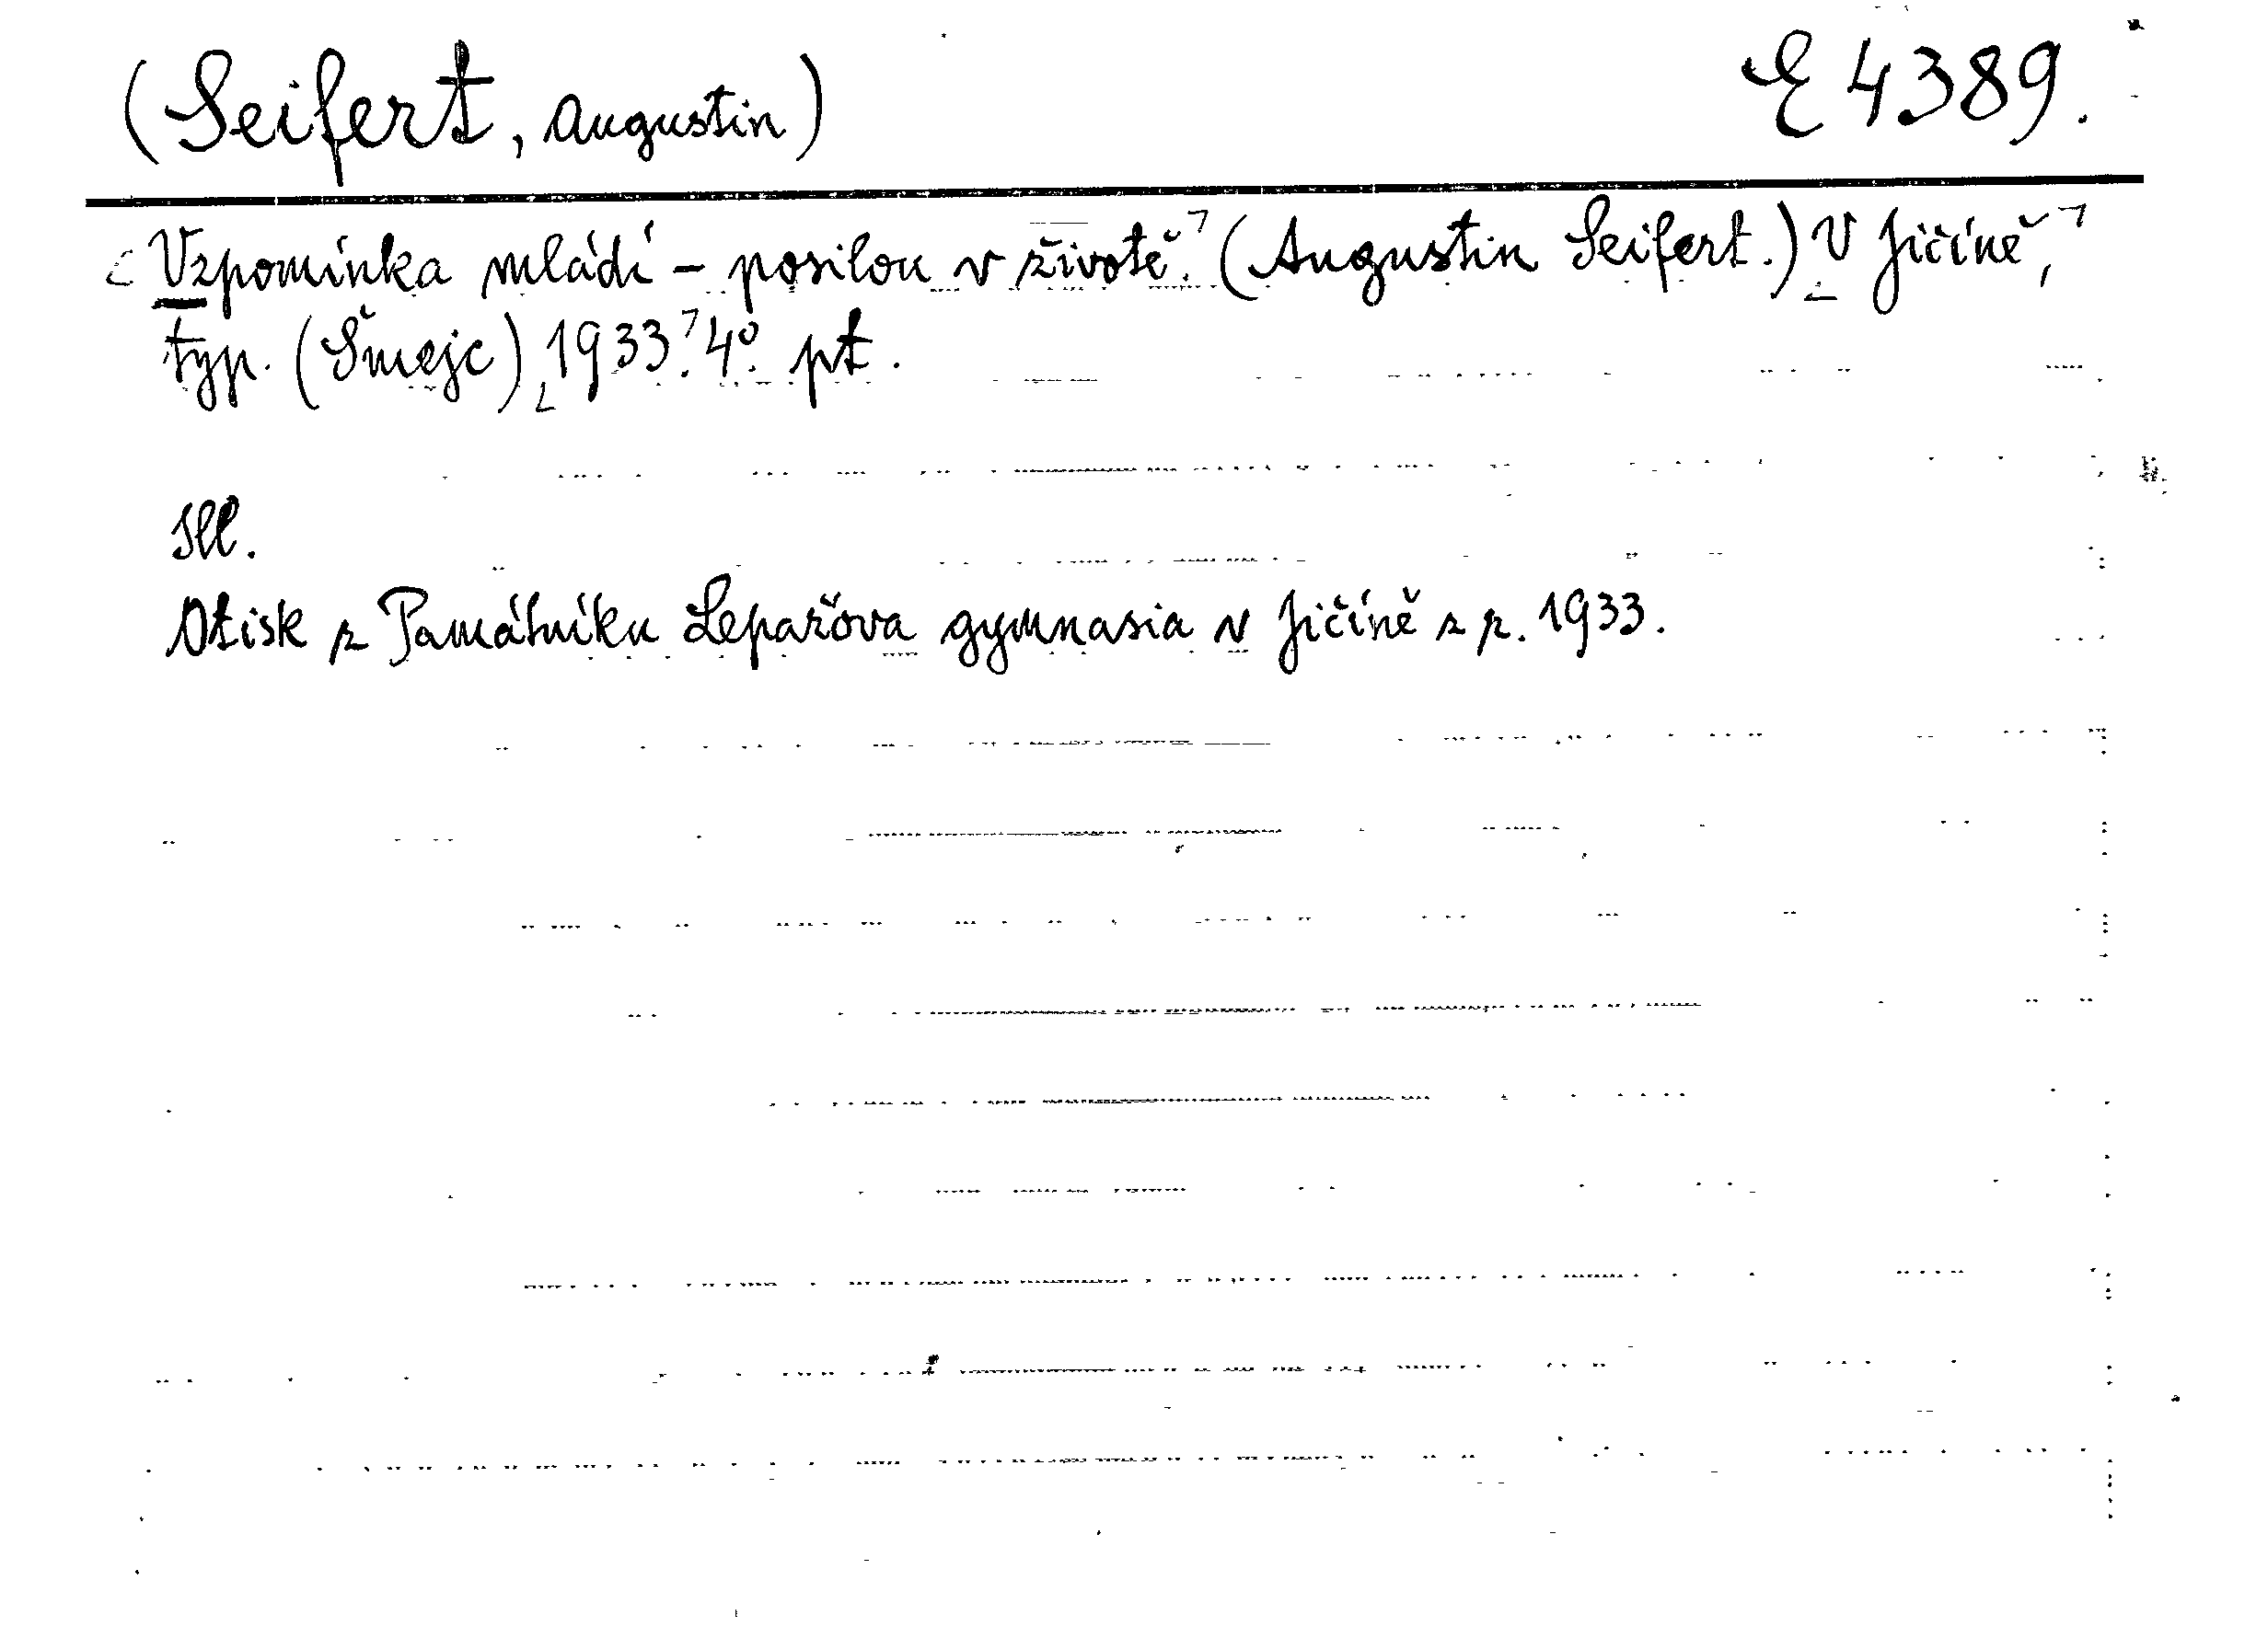 (Seifert, Augustin) E 4389.
Vzpomínka mládí - posilou v životě. (Augustin Seifert.) V Jičíně,
typ. (Šmejc) 1933. 4° pt.
Ill.
Otisk z Památníku Lepařova gymnasia v Jičíně z r. 1933.